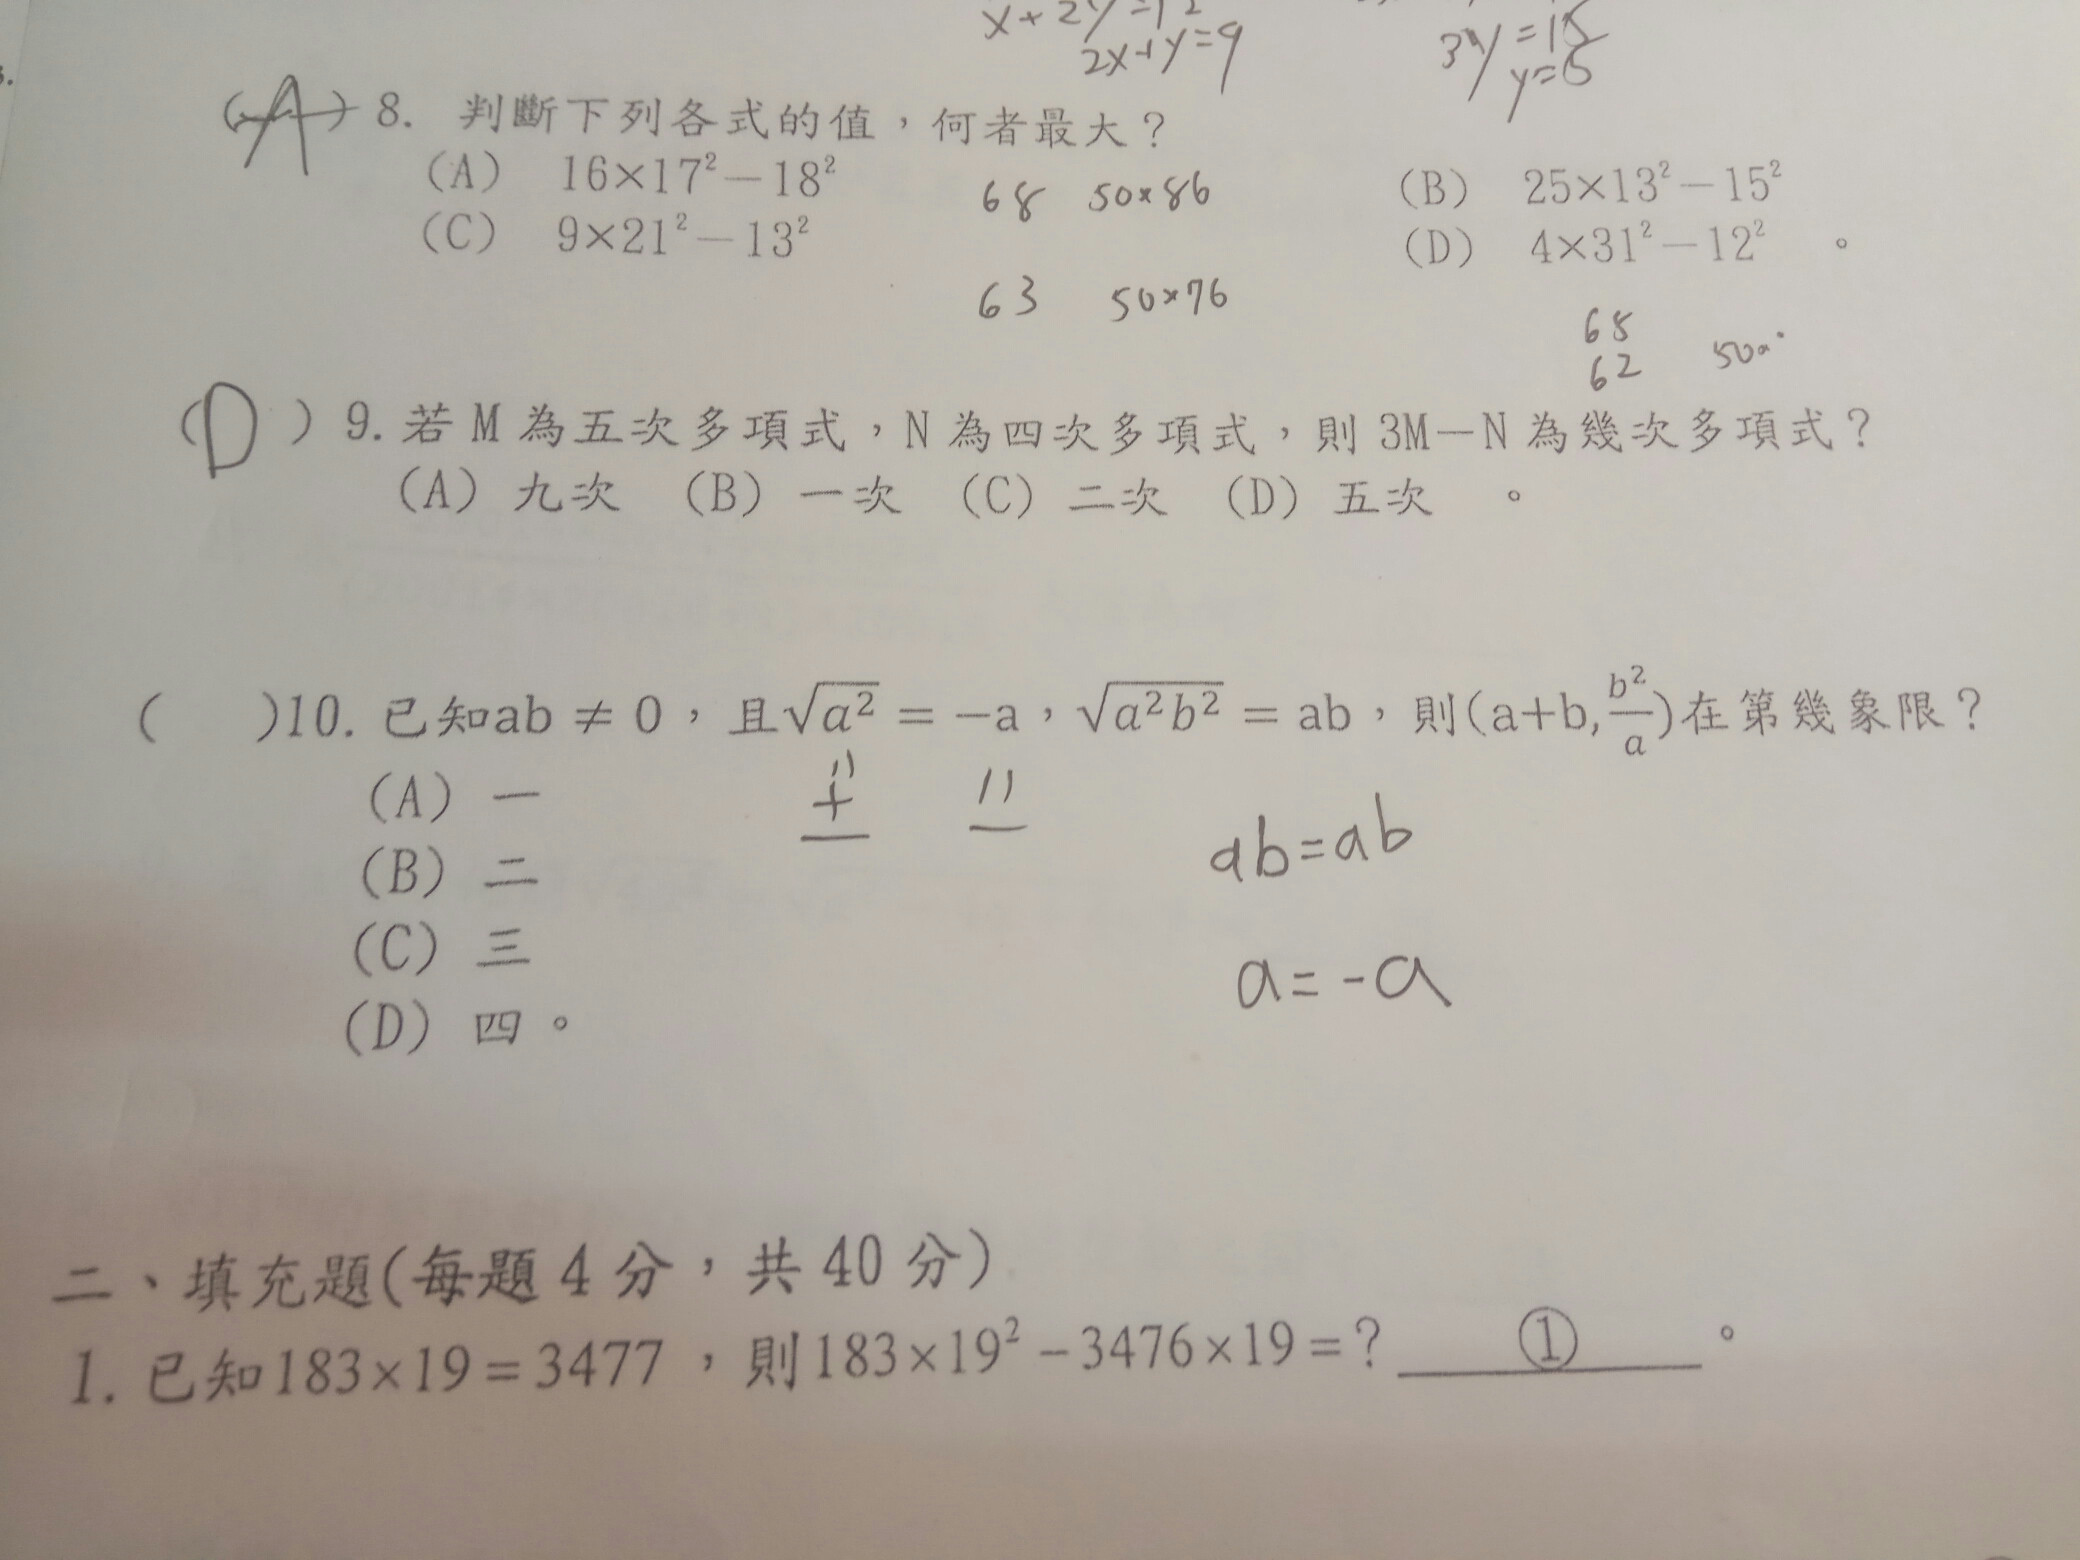 x+2y=12
2x+y=9
3y=15
y=5
(A) 8. 判斷下列各式的值，何者最大？
(A) 16×17²－18² (B) 25×13²－15²
68 50×86
(C) 9×21²－13² (D) 4×31²－12² 。
63 50×76
68
62
(D) 9. 若 M 為五次多項式，N 為四次多項式，則 3M－N 為幾次多項式？
(A) 九次 (B) 一次 (C) 二次 (D) 五次 。
( )10. 已知ab ≠ 0，且√a² = −a，√a²b² = ab，則(a+b, b²/a)在第幾象限？
(A) 一
(B) 二
(C) 三
(D) 四。
ab=ab
a=-a
二、填充題(每題 4 分，共 40 分)
1. 已知183×19=3477，則183×19²−3476×19=? ① 。